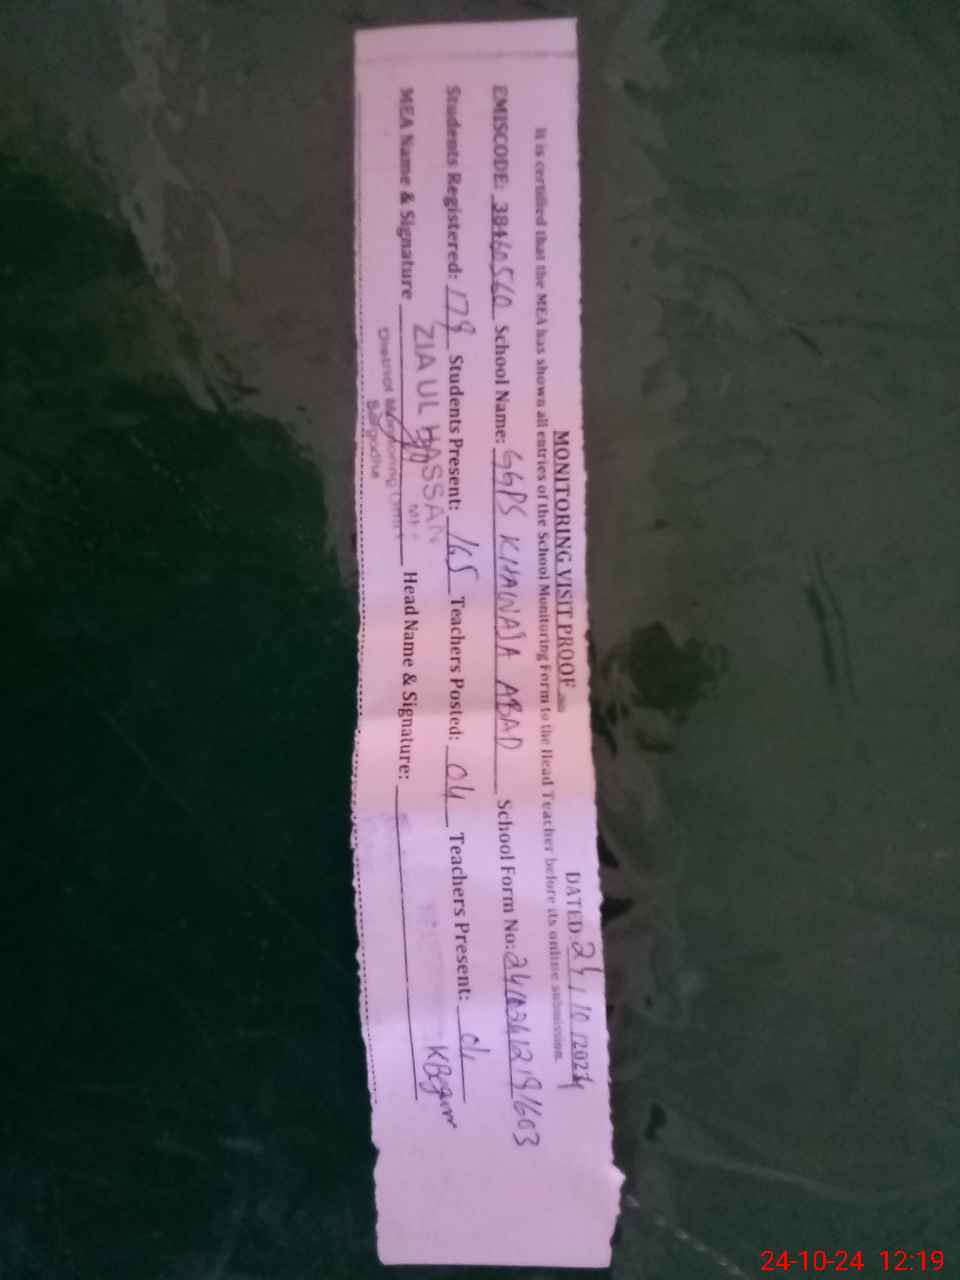 MONITORING VISIT PROOF
DATED: 24/10/2024
It is certified that the MEA has shown all entries of the School Monitoring Form to the Head Teacher before its online submission.
EMISCODE: 38460560 School Name: GGPS KHAWAJA ABAD School Form No:
Students Registered: 179 Students Present: 165 Teachers Posted: 04 Teachers Present: 04
MEA Name & Signature Head Name & Signature: KBegum
ZIA UL HASSAN
District Monitoring
Sargodha
24-10-24 12:19